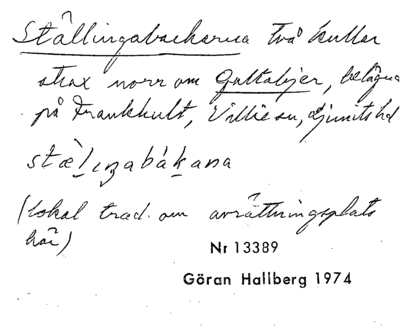 Ställingabackarna två kullar
strax norr om Gattabjer, belägna
på Frankhult, Villie sn, Ljunits hd
stæ̀l̠iŋabàk̠ana
(lokal trad. om avrättningsplats
här)
Nr 13389
Göran Hallberg 1974